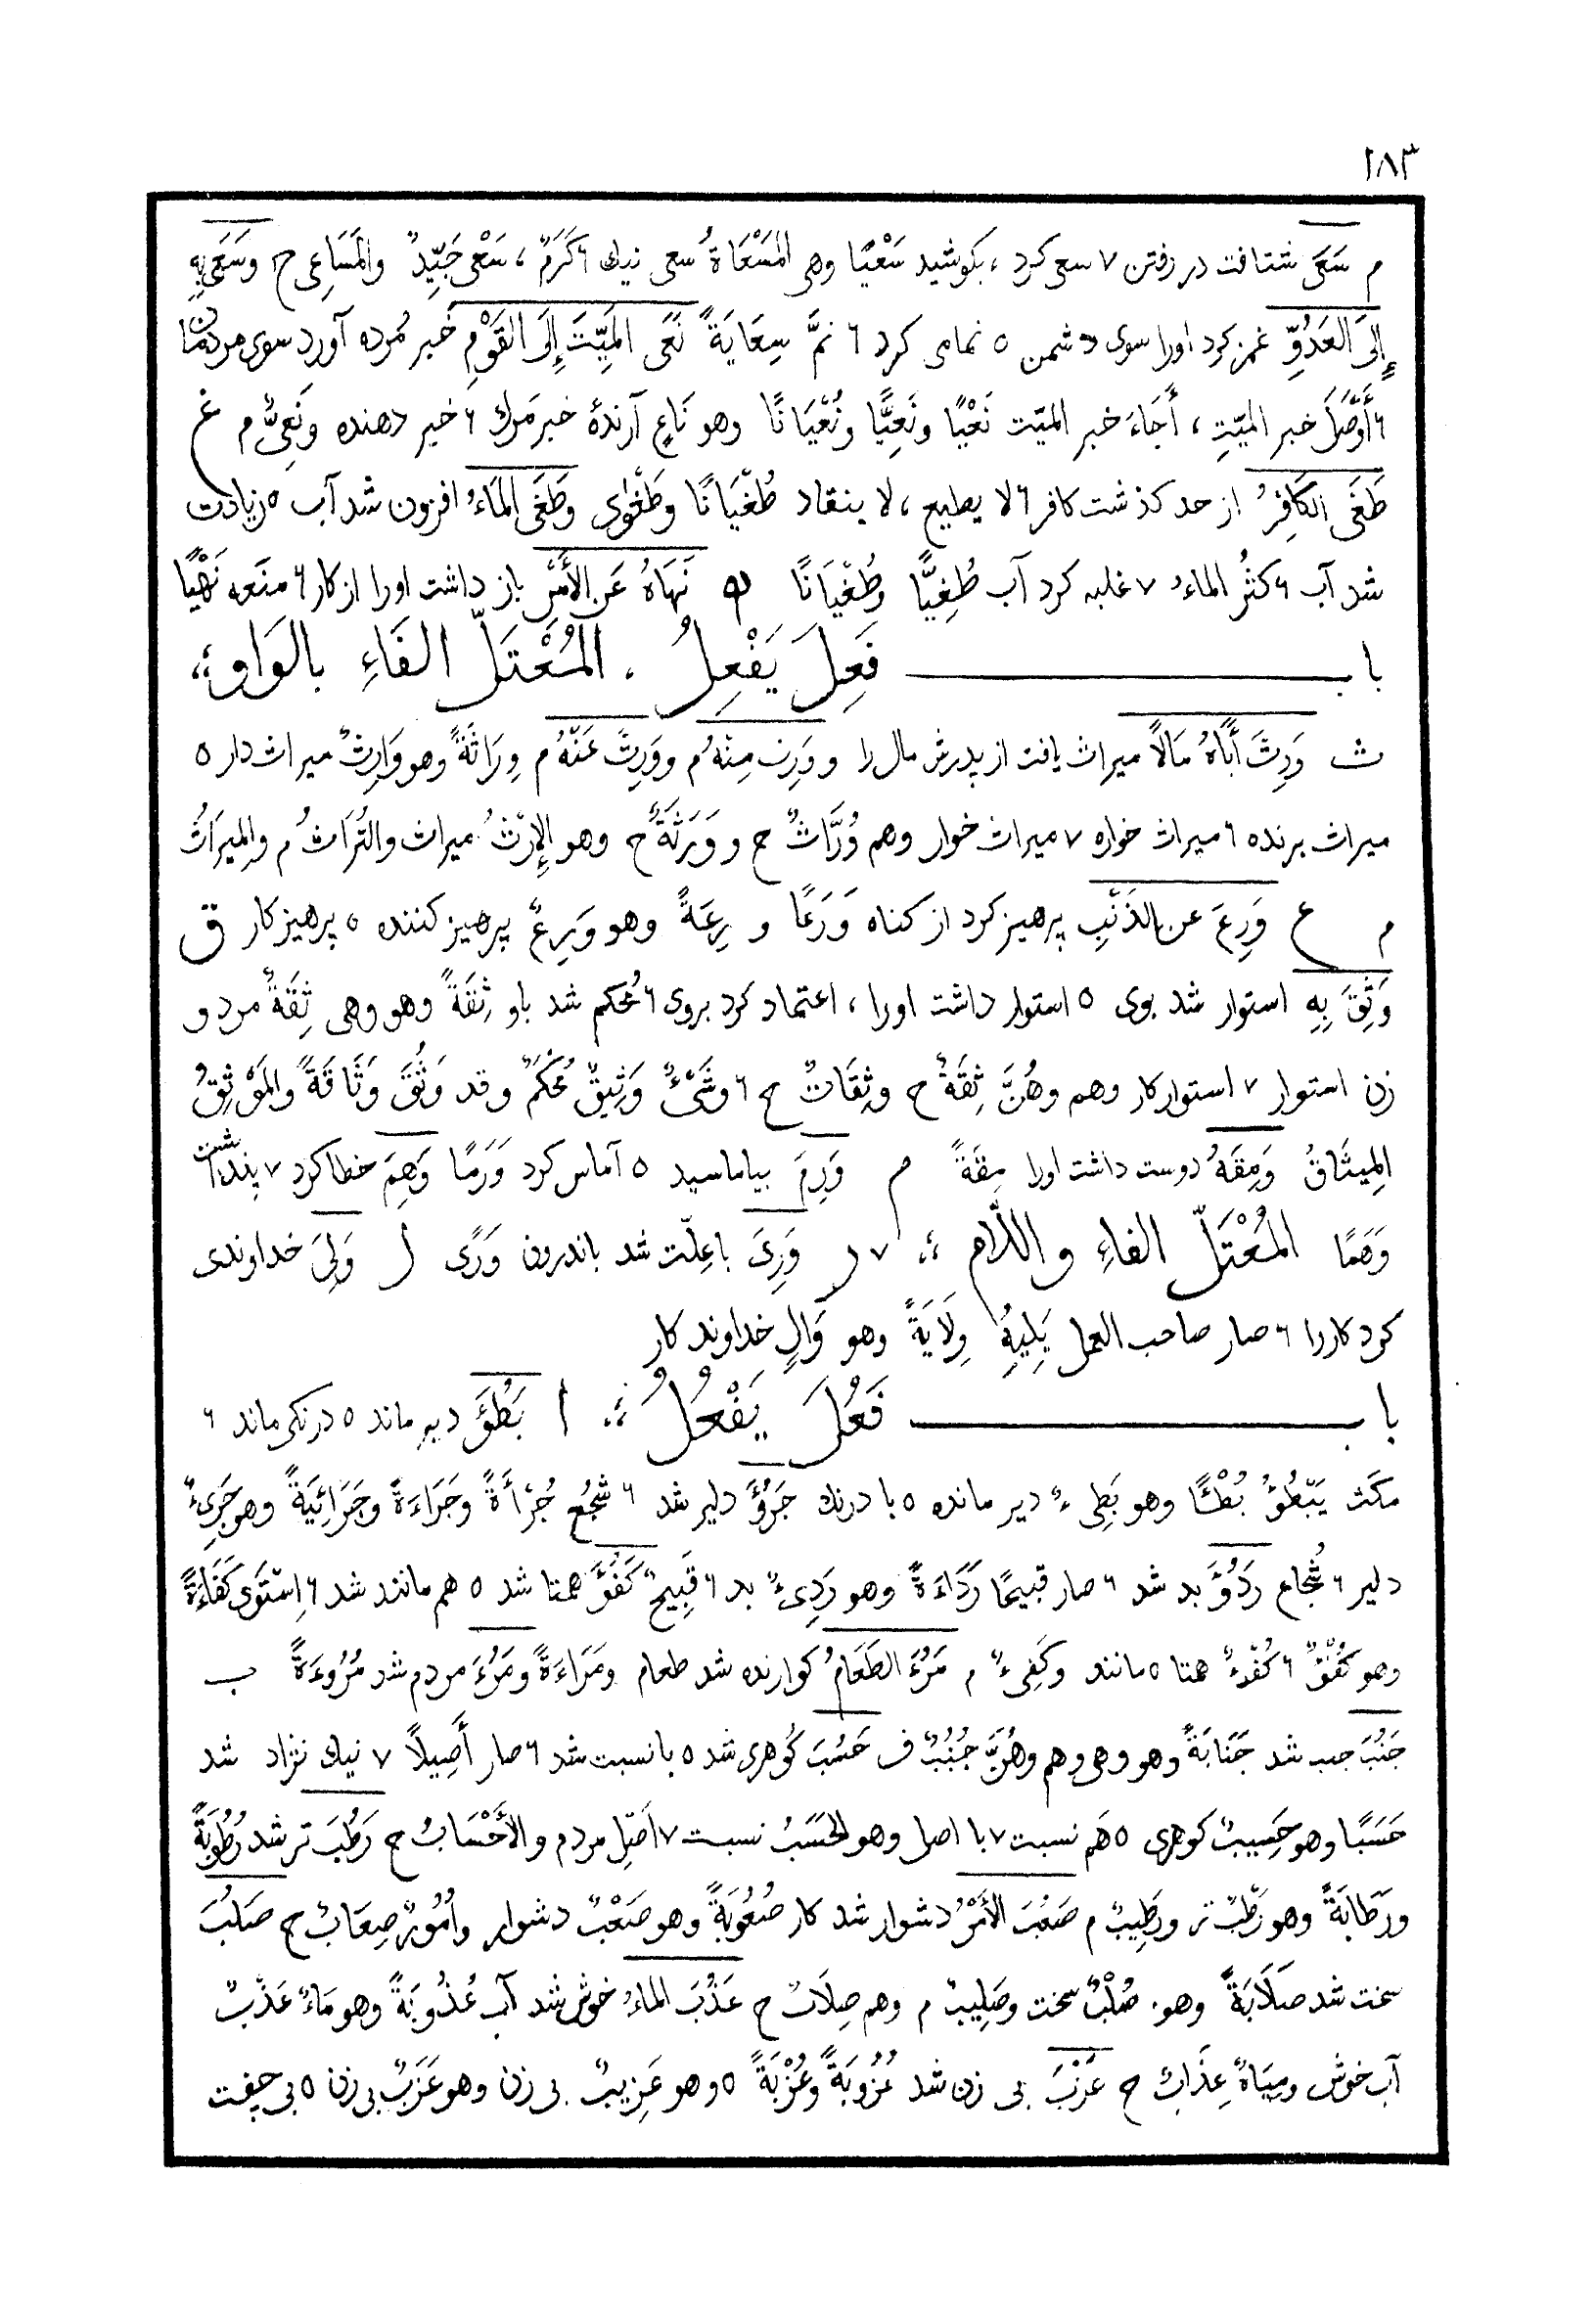 ١٨٣
م سَعَى شتافت در رفتن ٧ سعی کرد ، بکوشید سَعْيًا وهی المَسْعَاةُ سعی نیك ٦ كَرَمٌ ، سَعْىٌ جَيِّدٌ والمَسَاعِى ج وسَعَى بِهِ
إِلَى العَدُوِّ غمز کرد اورا سوی دشمن ٥ نمامی کرد ٦ نَمَّ سِعَايَةً نَعَى المَيِّتَ إِلَى القَوْمِ خبر مُرده آورد سوی مردمان
٦ أَوْصَلَ خبر الميّتِ ، أَجَاءَ خبر الميّت نَعْيًا ونَعِيًّا ونُعْيَانًا وهو نَاعٍ آرندهٔ خبر مَرك ٦ خبر دهنده ونَعِىٌّ م غ
طَغَى الكَافِرُ از حد کذشت کافر ٦ لا يطيع ، لا ينقاد طُغْيَانًا وطَغْوٰى وطَغَى المَاءُ افزون شد آب ٥ زیادت
شد آب ٦ كثُر الماءُ ٧ غلبه کرد آب طُغِيًّا وطُغْيَانًا ه نَهَاهُ عَنِ الأَمْرِ باز داشت اورا از کار ٦ منَعه نَهْيًا
باب فَعِلَ يَفْعِلُ ، المُعْتَلّ الفَاءِ بالوَاوِ ؞
ث وَرِثَ أَبَاهُ مَالًا میراث یافت از پدرش مال را ووَرِثَ مِنْهُ م ووَرِثَ عَنْهُ م وِرَاثَةً وهو وَارِثٌ میراث دار ٥
میراث برنده ٦ میراث خواره ٧ میراث خوار وهم وُرَّاثٌ ج ووَرَثَةٌ ج وهو الإِرْثُ میراث والتُّرَاثُ م والمِيرَاثُ
م ع وَرِعَ عن الذَنْبِ پرهیز کرد از کناه وَرَعًا و رِعَةً وهو وَرِعٌ پرهیز کننده ٥ پرهیز کار ق
وَثِقَ بِهِ استوار شد بوی ٥ استوار داشت اورا ، اعتماد کرد بروی ٦ مُحکم شد باو ثِقَةً وهو وهی ثِقَةٌ مرد و
زن استوار ٧ استوار کار وهم وهُنَّ ثِقَةٌ ج وثِقَاتٌ ج ٦ وشَىْءٌ وَثِيقٌ مُحْكَمٌ وقد وَثُقَ وَثَاقَةً والمَوْثِقُ
المِيثَاقُ وَمِقَهُ دوست داشت اورا مِقَةً م وَرِمَ بیاماسید ٥ آماس کرد وَرَمًا وَهِمَ خطا کرد ٧ پنداشت
وَهَمًا المُعْتَلّ الفاءِ واللّام ؞ ٧ ر وَرِىَ باعِلّت شد باندرون وَرًى ل وَلِىَ خداوندی
کرد کاررا ٦ صار صاحب العمل يَلِيهِ وِلَايَةً وهو وَالٍ خداوند کار
باب فَعُلَ يَفْعُلُ ؞ أ بَطُؤَ دیر ماند ٥ درنکی ماند ٦
مكَث يَبْطُؤُ بُطْئًا وهو بَطِىءٌ دیر مانده ٥ با درنك جَرُؤَ دلیر شد ٦ شجُع جُرْأَةً وجَرَاءَةً وجَرَائِيَةً وهو جَرِىءٌ
دلیر ٦ شُجَاع رَدُؤَ بد شد ٦ صار قبيحًا رَدَاءَةً وهو رَدِىءٌ بد ٦ قَبِيحٌ كَفُؤَ همتا شد ٥ هم مانند شد ٦ اِسْتَوَى كَفَاءَةً
وهو كُفُؤٌ ٦ كُفْءٌ همتا ٥ مانند وكَفِىءٌ م مَرُءَ الطَعَامُ کوارنده شد طعام ومَرَاءَةً ومَرُءَ مردم شد مُرُوءَةً ب
جَنُبَ جنب شد جَنَابَةً وهو وهی وهم وهُنَّ جُنُبٌ ف حَسُبَ کُوهری شد ٥ با نسبت شد ٦ صار أَصِيلًا ٧ نیك نژاد شد
حَسَبًا وهو حَسِيبٌ کوهری ٥ هَم نسبت ٧ با اصل وهو الحَسَبُ نسبت ٧ اَصْلِ مردم والأَحْسَابُ ج رَطُبَ تر شد رُطُوبَةً
ورَطَابَةً وهو رَطْبٌ تر ورَطِيبٌ م صَعُبَ الأَمْرُ دشوار شد کار صُعُوبَةً وهو صَعْبٌ دشوار وأُمُورٌ صِعَابٌ ج صَلُبَ
سخت شد صَلَابَةً وهو صُلْبٌ سخت وصَلِيبٌ م وهم صِلَابٌ ج عَذُبَ الماءُ خوش شد آب عُذُوبَةً وهو مَاءٌ عَذْبٌ
آب خوش ومِيَاهٌ عِذَابٌ ج عَزُبَ بی زن شد عُزُوبَةً وعُزْبَةً ٥ وهو عَزِيبٌ بی زن وهو عَزَبٌ بی زن ٥ بی جفت